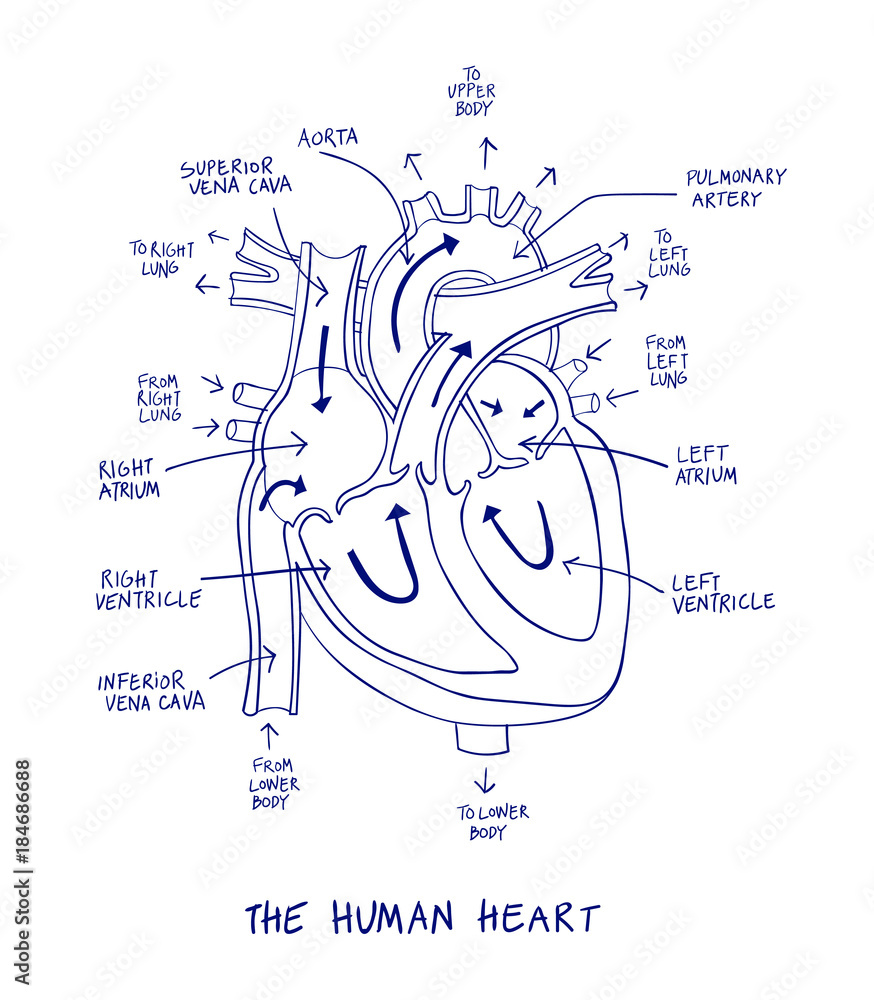 TO
UPPER
BODY
AORTA
SUPERIOR
VENA CAVA
PULMONARY
ARTERY
TO RIGHT
LUNG
TO
LEFT
LUNG
FROM
RIGHT
LUNG
FROM
LEFT
LUNG
RIGHT
ATRIUM
LEFT
ATRIUM
RIGHT
VENTRICLE
LEFT
VENTRICLE
INFERIOR
VENA CAVA
FROM
LOWER
BODY
TO LOWER
BODY
THE HUMAN HEART
Adobe Stock | #184686688
Adobe Stock